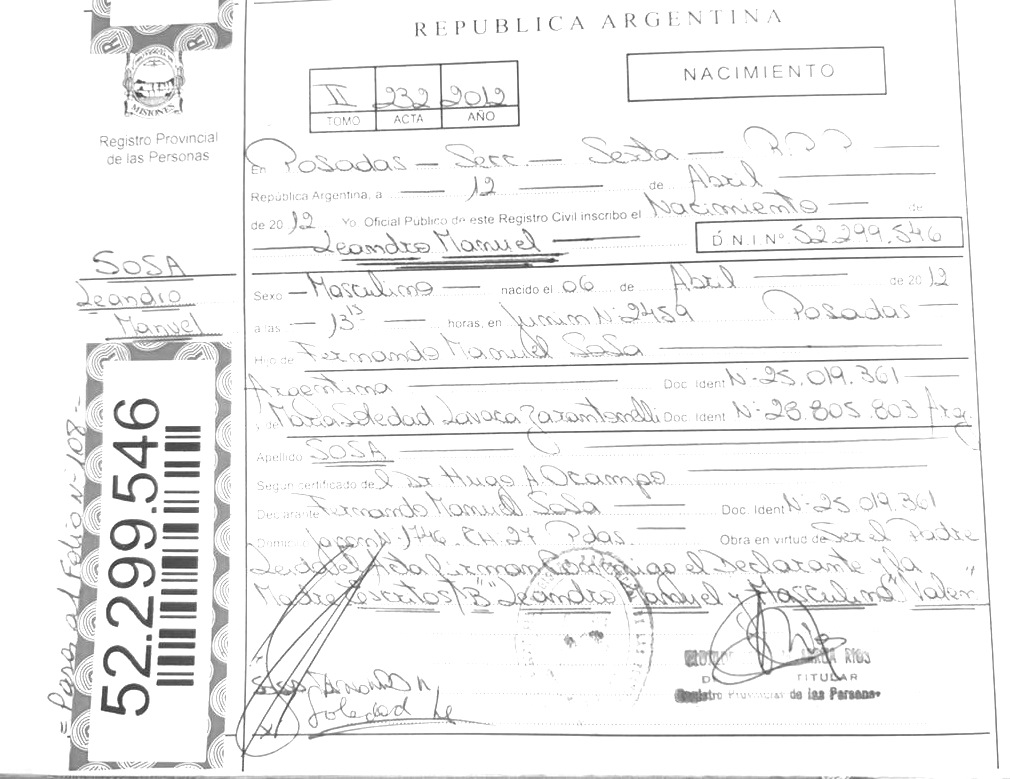 REPUBLICA ARGENTINA
NACIMIENTO
II 232 2012
TOMO ACTA AÑO
MISIONES
Registro Provincial
de las Personas
En Posadas - Secc - Sexta -
República Argentina, a 12 de Abril
de 2012 Yo Oficial Público de este Registro Civil inscribo el Nacimiento de
Leandro Manuel
D.N.I Nº 52.299.546
SOSA
Leandro
Manuel
Sexo - Masculino - nacido el 06 de Abril de 2012
a las - 13 15 - horas, en Junin Nº 2459 Posadas
Hijo de Fernando Manuel SoSa
Argentina Doc. Ident Nº 25.019.361
y de Maria Soledad Zarantonelli Doc. Ident Nº 28.805.803 Arg.
Apellido SOSA
Según certificado del Dr Hugo A. Ocampo
Declarante Fernando Manuel SoSa Doc. Ident Nº 25.019.361
Domic. CH. 27 Pdas. Obra en virtud de Ser el Padre
Leida el Acta firman conmigo el Declarante y la
Madre. Escritos/"B" Leandro Manuel y Masculino "Valen"
52.299.546
= Pasa al Folio Nº 108.-
Sosa Fernando M
Soledad
RIOS
TITULAR
Registro Provincial de las Personas